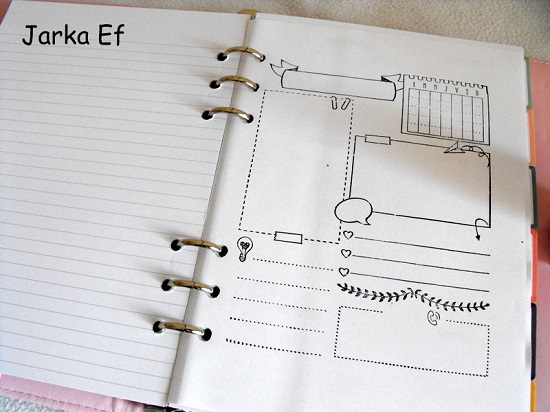 Jarka Ef
L M M J V S D